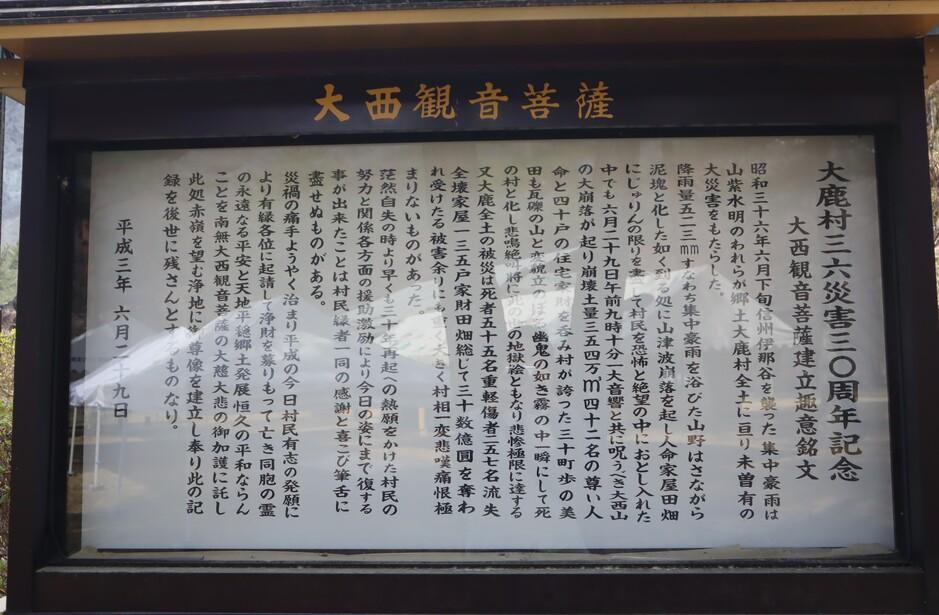 大西観音菩薩
大鹿村三六災害三〇周年記念
大西観音菩薩建立趣意銘文
昭和三十六年六月下旬信州伊那谷を襲った集中豪雨は
山紫水明のわれらが郷土大鹿村全土に亘り未曽有の
大災害をもたらした。
降雨量五一三㎜すなわち集中豪雨を浴びた山野はさながら
泥塊と化した如く到る処に山津波崩落を起し人命家屋田畑
にじゅりんの限りを盡して村民を恐怖と絶望の中におとし入れた
中でも六月二十九日午前九時十分一大音響と共に呪うべき大西山
の大崩落が起り崩壊土量三五四万㎥四十二名の尊い人
命と四十戸の住宅家財を呑み村が誇った三十町歩の美
田も瓦礫の山と変貌立のぼる幽鬼の如き霧の中一瞬にして死
の村と化し悲鳴絶叫将に死の地獄絵ともなり悲惨極限に達する
又大鹿全土の被災は死者五十五名重軽傷者二五七名流失
全壊家屋一三五戸家財田畑総じて三十数億圓を奪わ
れ受けたる被害余りにも重く大きく村相一変悲嘆痛恨極
まりないものがあった。
茫然自失の時より早くも三十年再起への熱願をかけた村民の
努力と関係各方面の援助激励により今日の姿にまで復する
事が出来たことは村民縁者一同の感謝と喜こび筆舌に
盡せぬものがある。
災禍の痛手ようやく治まり平成の今日村民有志の発願に
より有縁各位に起請して浄財を募りもって亡き同胞の霊
の永遠なる平安と天地平穏郷土発展恒久の平和ならん
ことを南無大西観音菩薩の大慈大悲の御加護に託し
此処赤嶺を望む浄地に御尊像を建立し奉り此の記
録を後世に残さんとするものなり。
平成三年 六月二十九日